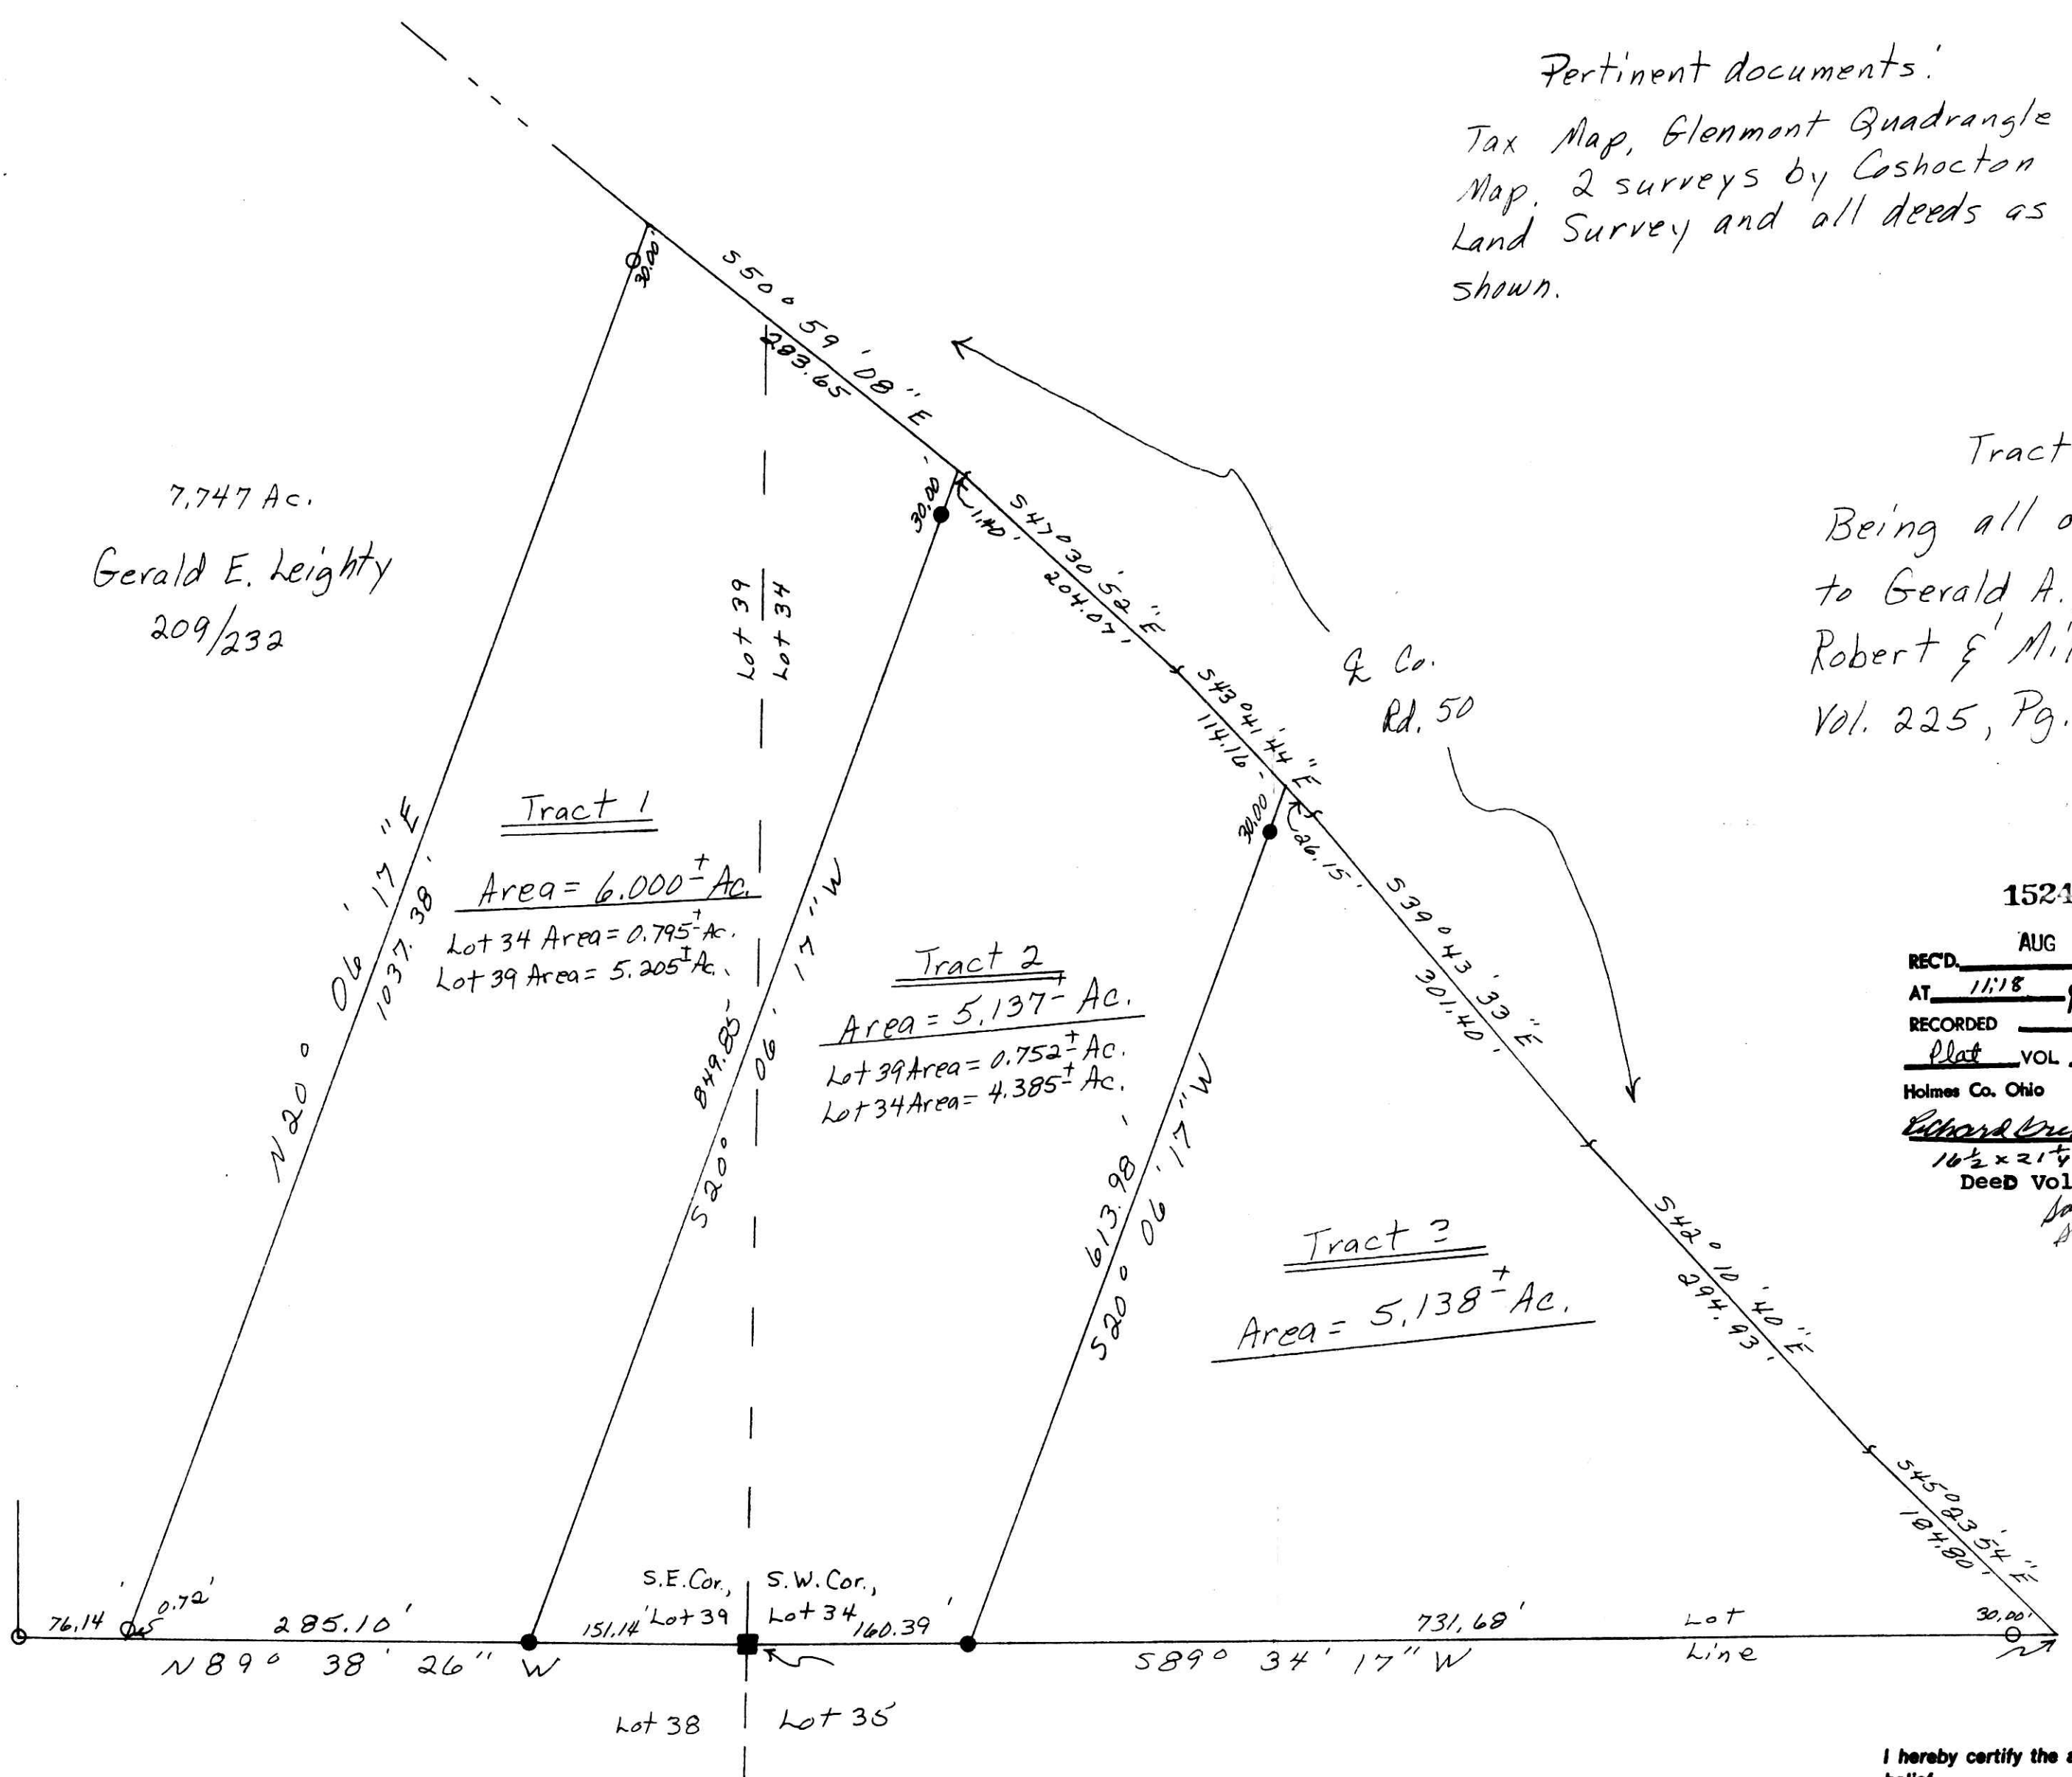 Pertinent documents:
Tax Map, Glenmont Quadrangle
Map, 2 surveys by Coshocton
Land Survey and all deeds as
shown.
30.00'
S50° 59' 08" E
283.65
7.747 Ac.
Gerald E. Leighty
209/232
Lot 39
Lot 34
30.00'
1.40'
S47° 30' 52" E
204.07'
S43° 41' 44" E
114.16'
℄ Co.
Rd. 50
30.00'
26.15'
S39° 43' 33" E
301.40'
S42° 10' 40" E
294.93'
S45° 23' 54" E
184.80'
Tract
Being all
to Gerald A.
Robert &
Vol. 225, Pg.
N 20° 06' 17" E
1037.38'
Tract 1
Area = 6.000± Ac.
Lot 34 Area = 0.795± Ac.
Lot 39 Area = 5.205± Ac.
849.85
S 20° 06' 17" W
Tract 2
Area = 5.137± Ac.
Lot 39 Area = 0.752± Ac.
Lot 34 Area = 4.385± Ac.
613.98'
S20° 06' 17" W
Tract 3
Area = 5.138± Ac.
1524
REC'D. AUG
AT 11:18
RECORDED
Plat VOL
Holmes Co. Ohio
Richard
16½ x 21¼
DeeD Vol
76.14'
0.72'
285.10'
151.14'
S.E. Cor.,
Lot 39
S.W. Cor.,
Lot 34
160.39'
731.68'
Lot
Line
30.00'
N 89° 38' 26" W
S89° 34' 17" W
Lot 38
Lot 35
I hereby certify the